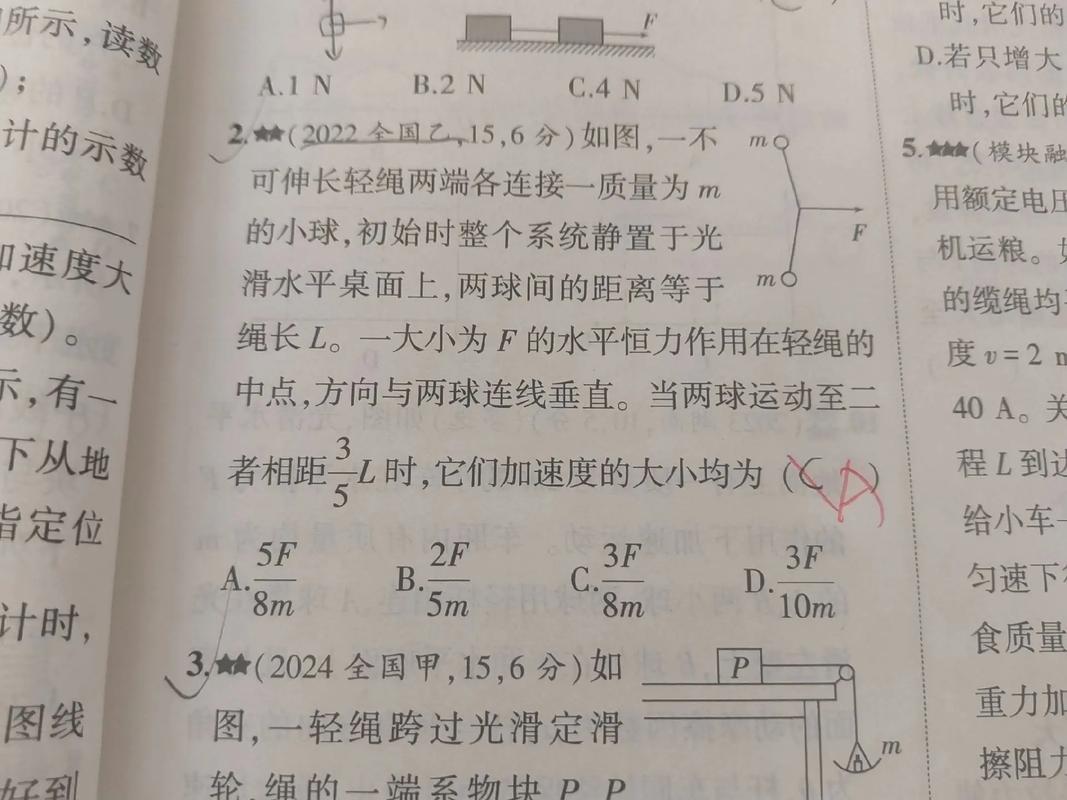 所示,读数
);
计的示数
加速度大
数)。
示,有一
下从地
指定位
计时,
图线
好到
F
A.1 N B.2 N C.4 N D.5 N
2.★★(2022 全国乙,15,6 分)如图,一不
可伸长轻绳两端各连接一质量为 m
的小球,初始时整个系统静置于光
滑水平桌面上,两球间的距离等于
绳长 L。一大小为 F 的水平恒力作用在轻绳的
中点,方向与两球连线垂直。当两球运动至二
者相距 3/5 L 时,它们加速度的大小均为 (C A)
m
F
m
A. 5F/8m B. 2F/5m C. 3F/8m D. 3F/10m
3.★★(2024 全国甲,15,6 分)如
图,一轻绳跨过光滑定滑
轮,绳的一端系物块 P,P
P
m
时,它们的
D.若只增大
时,它们的
5.★★★(模块融
用额定电压
机运粮。
的缆绳均
度 v = 2 m
40 A。关
程 L 到达
给小车一
匀速下
食质量
重力加
擦阻力